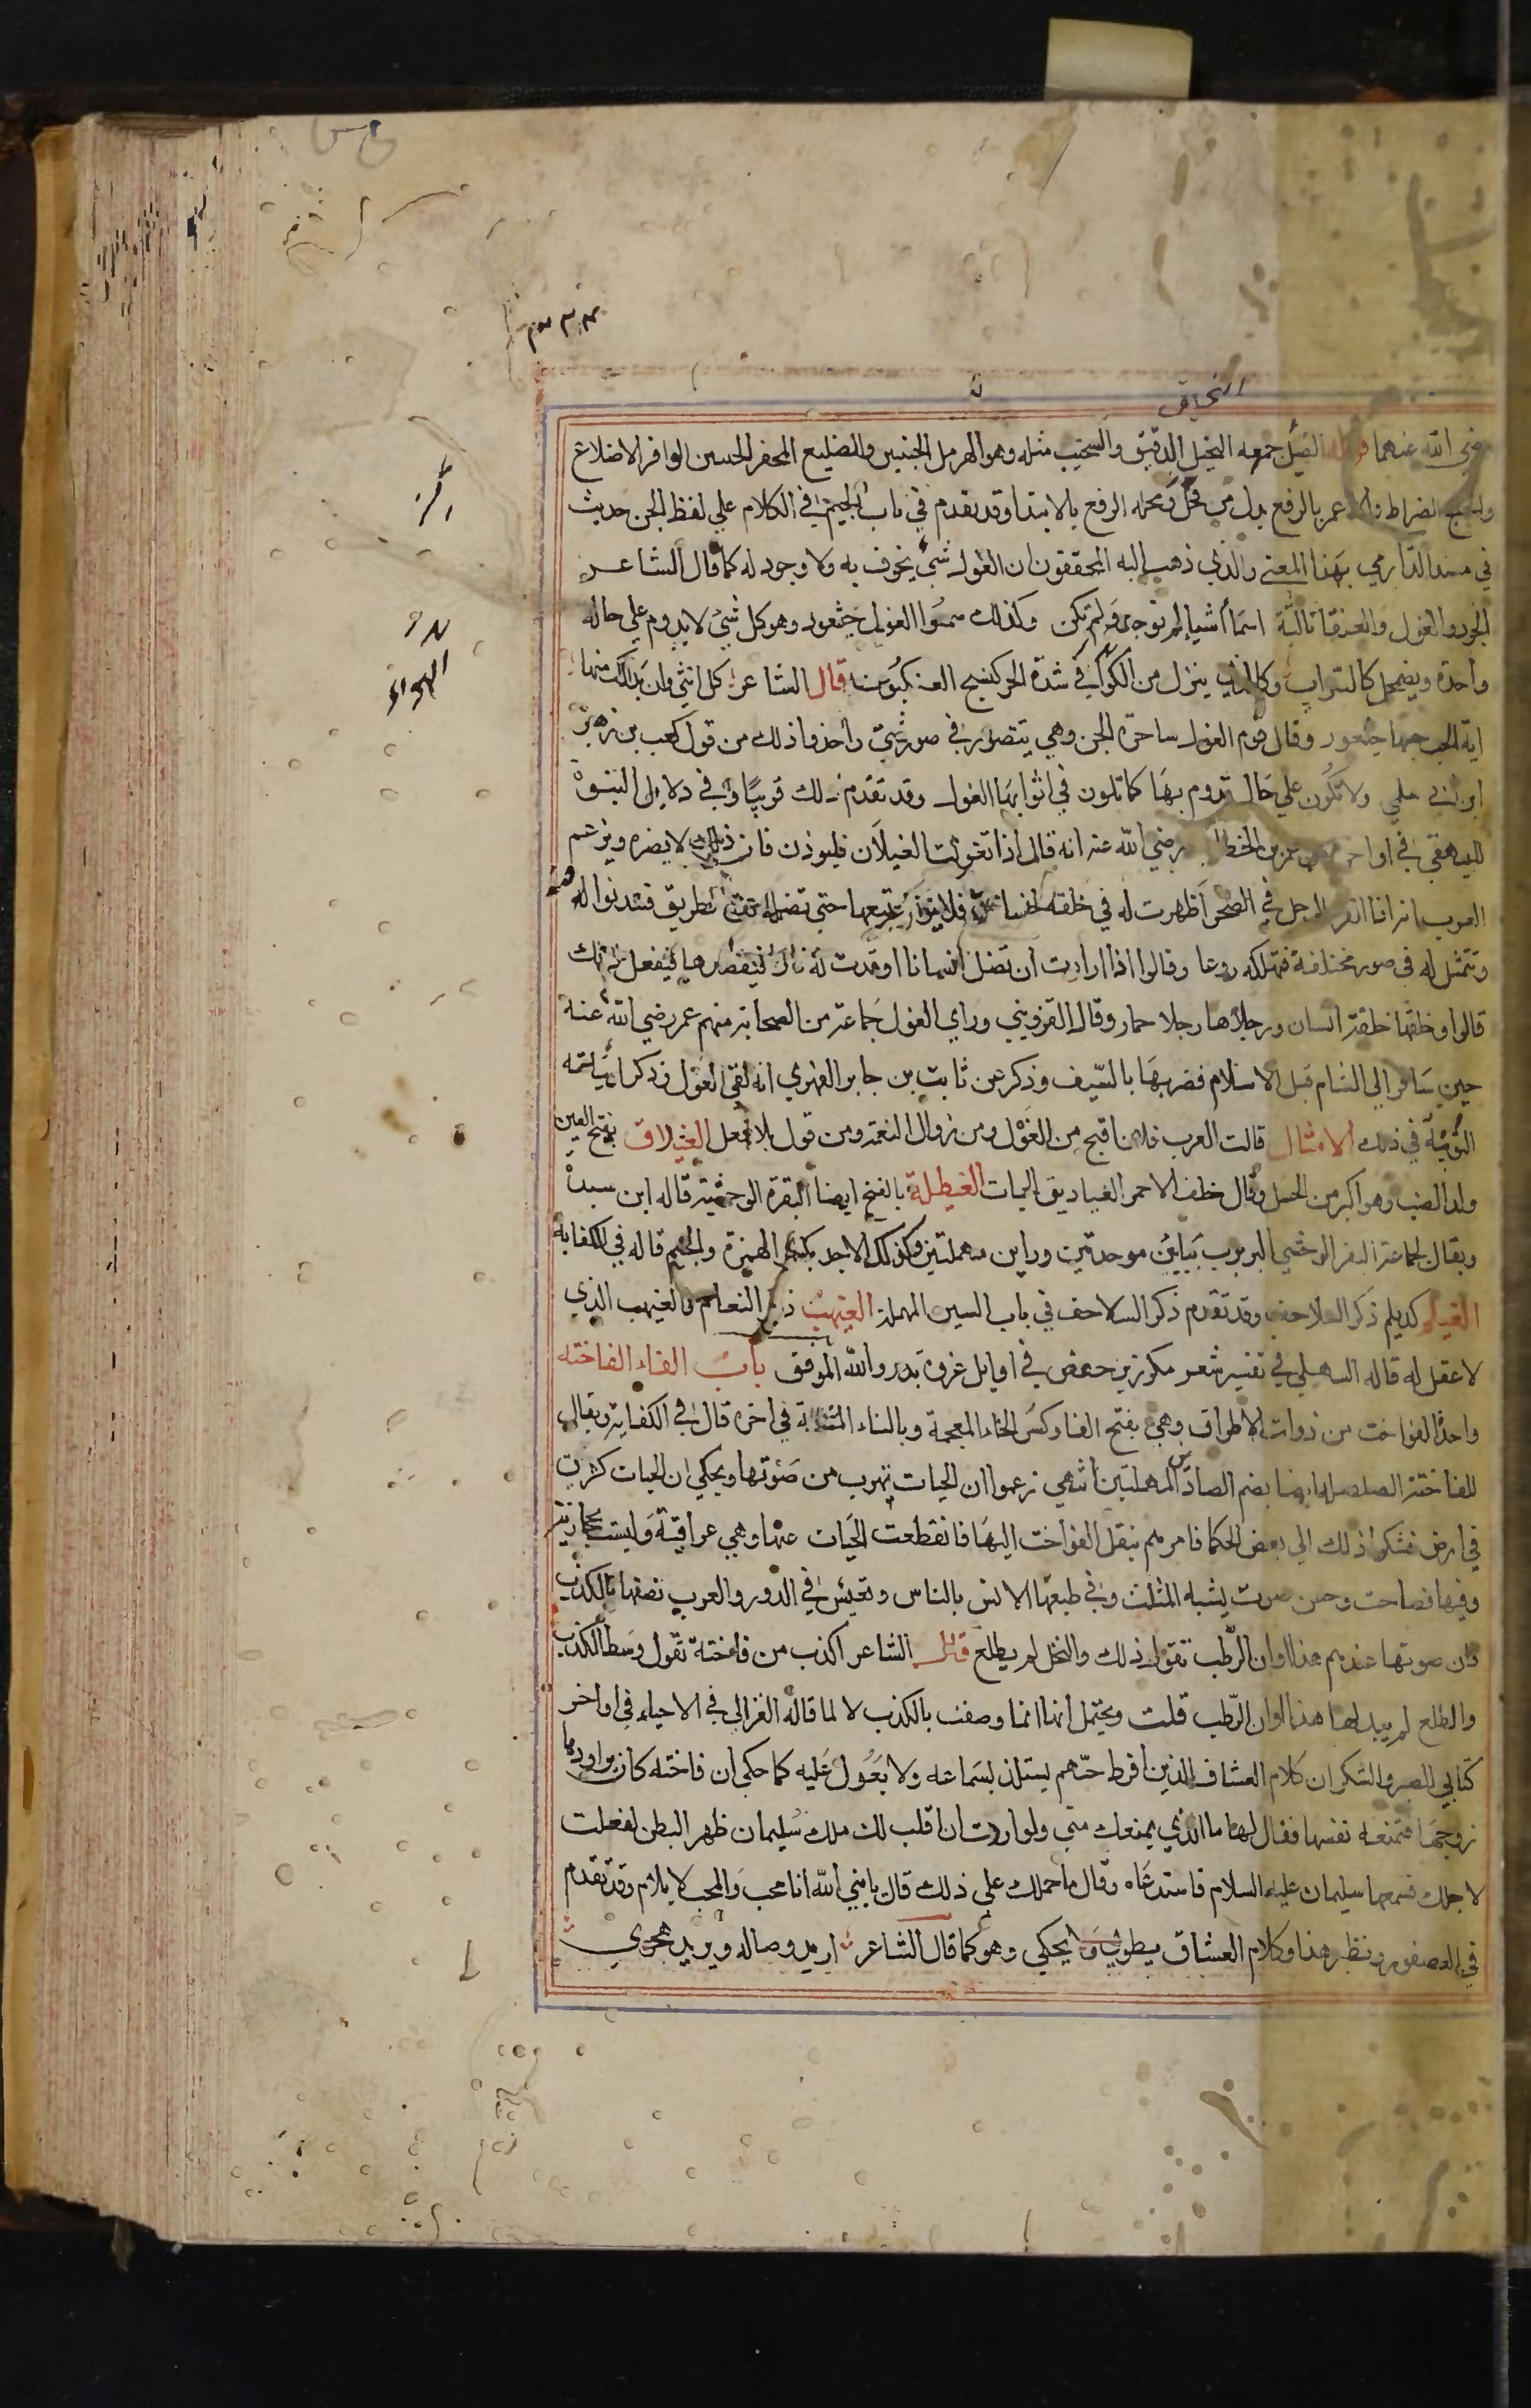 النحيف
رضي الله عنهما قوله الضئيل جمعه النحيل الدقيق والسخيت مثله وهو المهزول الجنبين والضليع المجفر الجنبين الوافر الاضلاع
والخبج الضراط والا عمر بالرفع بدل من محل ومحله الرفع بالابتدا وقد تقدم في باب الجيم في الكلام علي لفظ الجن حديث
في مسند الدارمي بهذا المعني والذي ذهب اليه المحققون ان الغول شيء يخوف به ولا وجود له كما قال الشاعر
الجود والغول والعنقا ثالثة اسما أشيا لم توجد ولم تكن وكذلك سموا الغول خيثعور وهو كل شيء لا يدوم علي حالة
واحدة ويضمحل كالسراب وكالذي ينزل من الكوا في شدة الحر كنسج العنكبوت قال الشاعر كل انثي وان بدا لك منها
اية الحب حبها خيثعور وقال قوم الغول ساحرة الجن وهي تتصور في صور شتي واخذوا ذلك من قول كعب بن زهير
ابن ابي سلمي ولا تكون علي حال تدوم بها كما تلون في اثوابها الغول وقد تقدم ذلك قريبًا وفي دلايل النبوة
للبيهقي في اواخر عمر بن الخطاب رضي الله عنه انه قال اذا تغولت الغيلان فليوذن فان ذلك لا يضره ويزعم
العرب انه اذا انفرد الرجل في الصحرا ظهرت له في خلقة انسان فلا يزال يتبعها حتي تضله عن الطريق فتدنوا له
وتتمثل له في صور مختلفة فتهلكه روعا وقالوا اذا ارادت ان تضل انسانا اوقدت له نارا فيقصدها فيفعل ذلك
قالوا وخلقتها خلقة انسان ورجلاها رجلا حمار وقال القزويني وراي الغول جماعة من الصحابة منهم عمر رضي الله عنه
حين سافر الي الشام قبل الاسلام فضربها بالسيف وذكر عن ثابت بن جابر الفهري انه لقي الغول وذكر ابياته
النونية في ذلك الامثال قالت العرب فلان اقبح من الغول ومن زوال النعمة ومن قول بلا فعل الغيداق بفتح الغين
ولد الضب وهو اكبر من الحسل وقال خلف الاحمر الغياديق الحيات الغيطلة بالفتح ايضا البقرة الوحشية قاله ابن سيدة
ويقال لجماعة البقر الوحشي الربرب بباين موحدتين وراين مهملتين وكذلك الاجل بكسر الهمزة والجيم قاله في الكفاية
الغيلم كديلم ذكر السلاحف وقد تقدم ذكر السلاحف في باب السين المهملة الغيهب ذكر النعام والغيهب الذي
لا عقل له قاله السهيلي في تفسير شعر مكرز بن حفص في اوايل غزوة بدر والله الموفق باب الفاء الفاخته
واحدة الفواخت من ذوات الاطواق وهي بفتح الفا وكسر الخاء المعجمة وبالتاء المثناة في اخره قال في الكفاية ويقال
للفاختة الصلصل ايضا بضم الصادين المهملتين انتهي زعموا ان الحيات تهرب من صوتها ويحكي ان الحيات كثرت
في ارض فشكوا ذلك الي بعض الحكما فامرهم بنقل الفواخت اليها فانقطعت الحيات عنها وهي عراقية وليست بحجازية
وفيها فصاحة وحسن صوت يشبه المثلث وفي طبعها الانس بالناس وتعيش في الدور والعرب تصفها بالكذب
فان صوتها عندهم هذا اوان الرطب تقول ذلك والنخل لم يطلع قال الشاعر اكذب من فاختة تقول وسط الكذب
والطلع لم يبد لها هذا اوان الرطب قلت ويحتمل انها انما وصفت بالكذب لا لما قاله الغزالي في الاحياء في اواخر
كتابي الصبر والشكر ان كلام العشاق الذين افرط حبهم يستلذ بسماعه ولا يعول عليه كما حكي ان فاختة كان يراودها
زوجها فتمنعه نفسها فقال لها ما الذي يمنعك مني ولو اردت ان اقلب لك ملك سليمان ظهر البطن لفعلت
لاجلك فسمعها سليمان عليه السلام فاستدعاه وقال ما حملك علي ذلك قال يا نبي الله انا محب والمحب لا يلام وقد تقدم
في العصفور ونظر هذا وكلام العشاق يطوي ولا يحكي وهو كما قال الشاعر اريد وصاله ويريد هجري